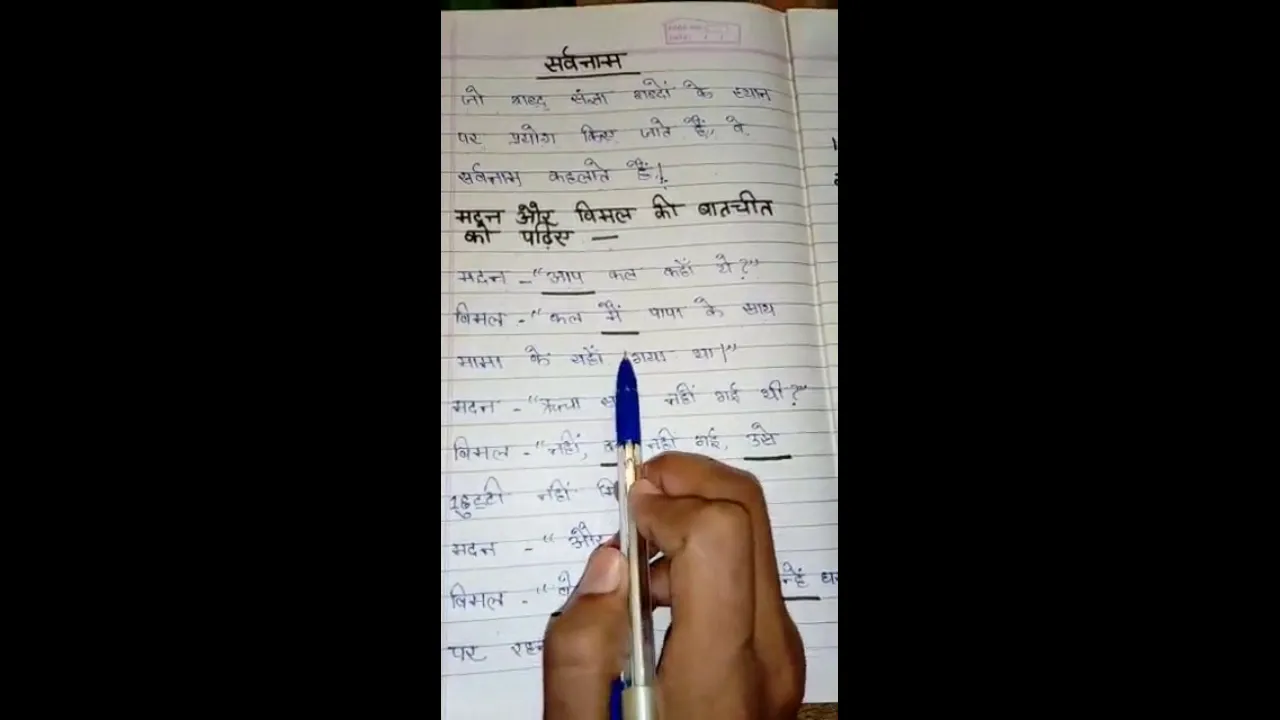 सर्वनाम
जो शब्द संज्ञा शब्दों के स्थान
पर प्रयोग किए जाते हैं, वे
सर्वनाम कहलाते हैं।
मदन और विमल की बातचीत
को पढ़िए —
मदन -"आप कल कहाँ थे?"
विमल -"कल मैं पापा के साथ
मामा के यहाँ गया था।"
मदन -" नहीं गई थी?"
विमल -"नहीं, नहीं गई, उसे
छुट्टी नहीं
मदन - "और
विमल -"
पर